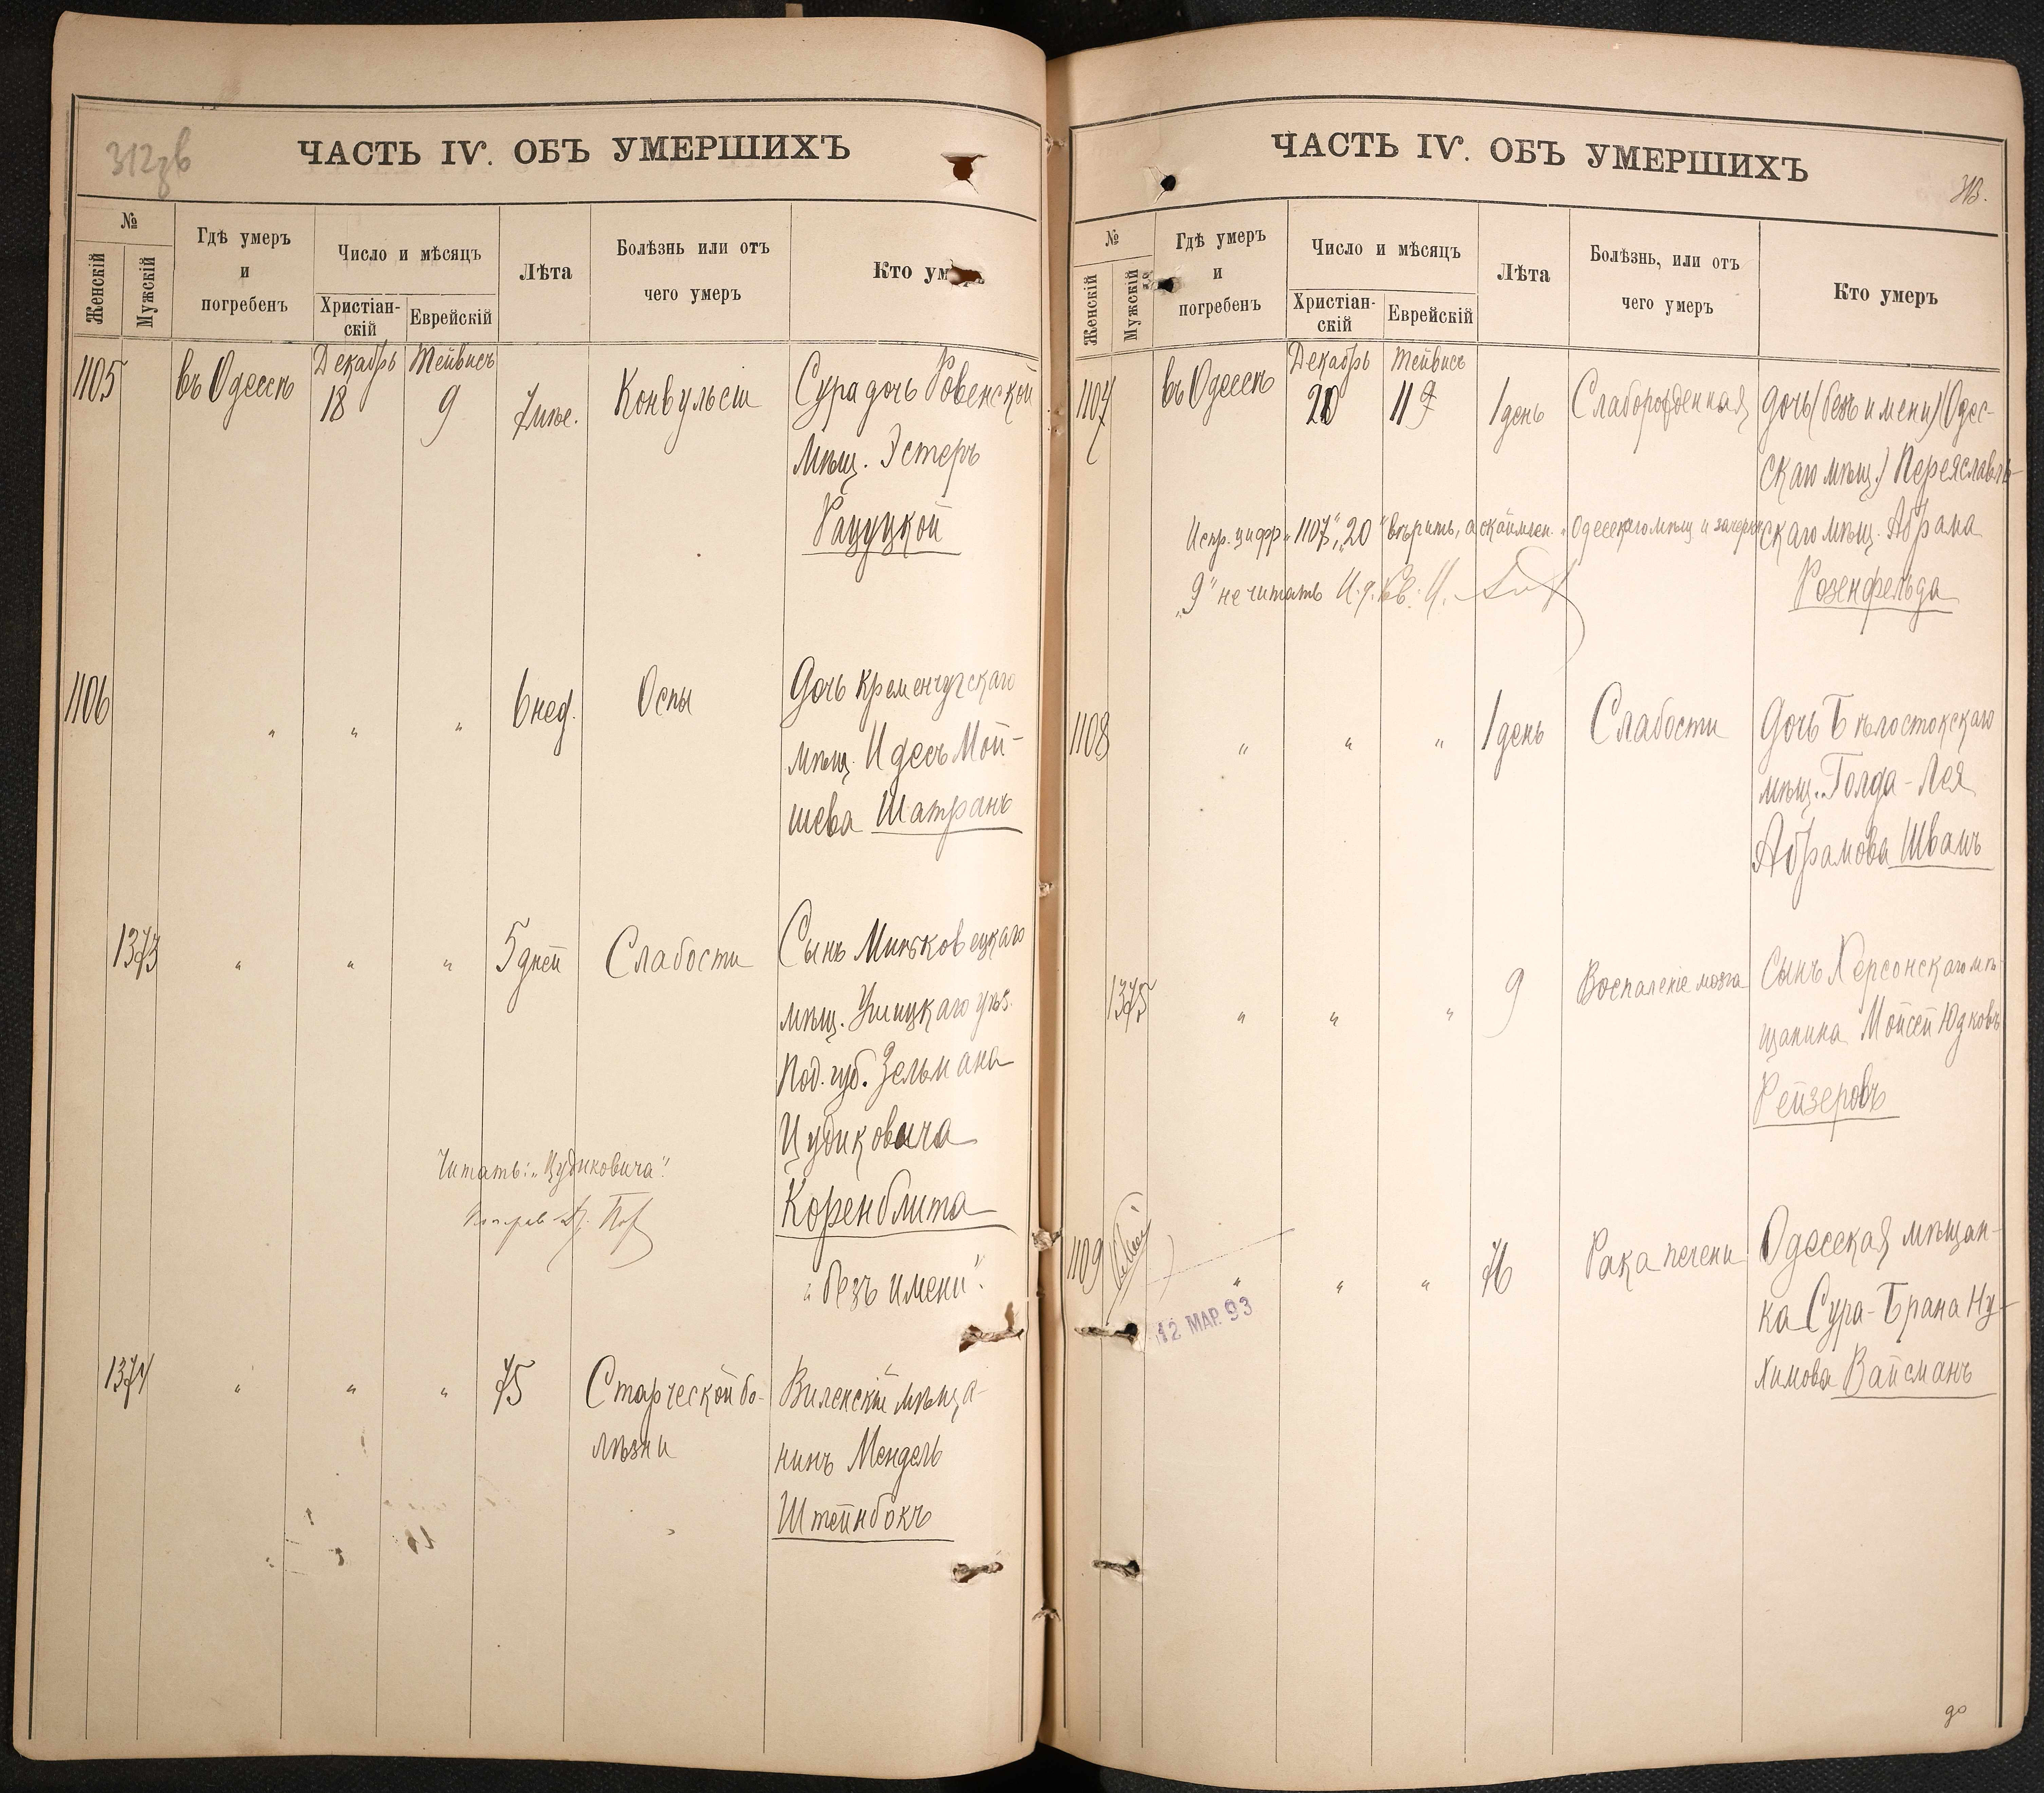 312 об
ЧАСТЬ IV. ОБЪ УМЕРШИХЪ
№
Женскій
Мужскій
Гдѣ умеръ
и
погребенъ
Число и мѣсяцъ
Христіан-
скій
Еврейскій
Лѣта
Болѣзнь или отъ
чего умеръ
Кто ум
1105
въ Одессѣ
Декабрь
18
Тейвисъ
9
7 мѣс.
Конвульсіи
Сура дочь Ровенской
мѣщ. Эстеръ
Рацуцкой
1106
„ „ „
6 нед.
Оспы
Дочь Кременчугскаго
мѣщ. Идесъ Мой-
шева Шатранъ
1373
„ „ „
5 дней
Слабости
Сынъ Миньковецкаго
мѣщ. Ушицкаго уѣз.
Под. губ. Зельмана
Цудиковича
Коренблита
„безъ имени".
Читать: „Цудиковича".
1374
„ „ „
75
Старческой бо-
лѣзни
Виленскій мѣща-
нинъ Мендель
Штейнбокъ
ЧАСТЬ IV. ОБЪ УМЕРШИХЪ
313.
№
Женскій
Мужскій
Гдѣ умеръ
и
погребенъ
Число и мѣсяцъ
Христіан-
скій
Еврейскій
Лѣта
Болѣзнь, или отъ
чего умеръ
Кто умеръ
1107
въ Одессѣ
Декабрь
20
Тейвисъ
11 9
1 день
Слаборожденная
Дочь (безъ имени) (Одес-
скаго мѣщ.) Переяславль-
скаго мѣщ. Абрама
Розенфельда
Испр. цифр. „1107", „20" вѣрить, а „Одесскаго мѣщ и зачеркн
„9" не читать
1108
„ „ „
1 день
Слабости
Дочь Бѣлостокскаго
мѣщ. Голда-Лея
Абрамова Швацъ
1375
„ „ „
9
Воспаленіе мозга
Сынъ Херсонскаго мѣ-
щанина Мойсей Юдковъ
Рейзеровъ
1109
„ „ „
76
Рака печени
Одесская мѣщан-
ка Сура-Брана Ну-
химова Вайсманъ
12 МАР. 93